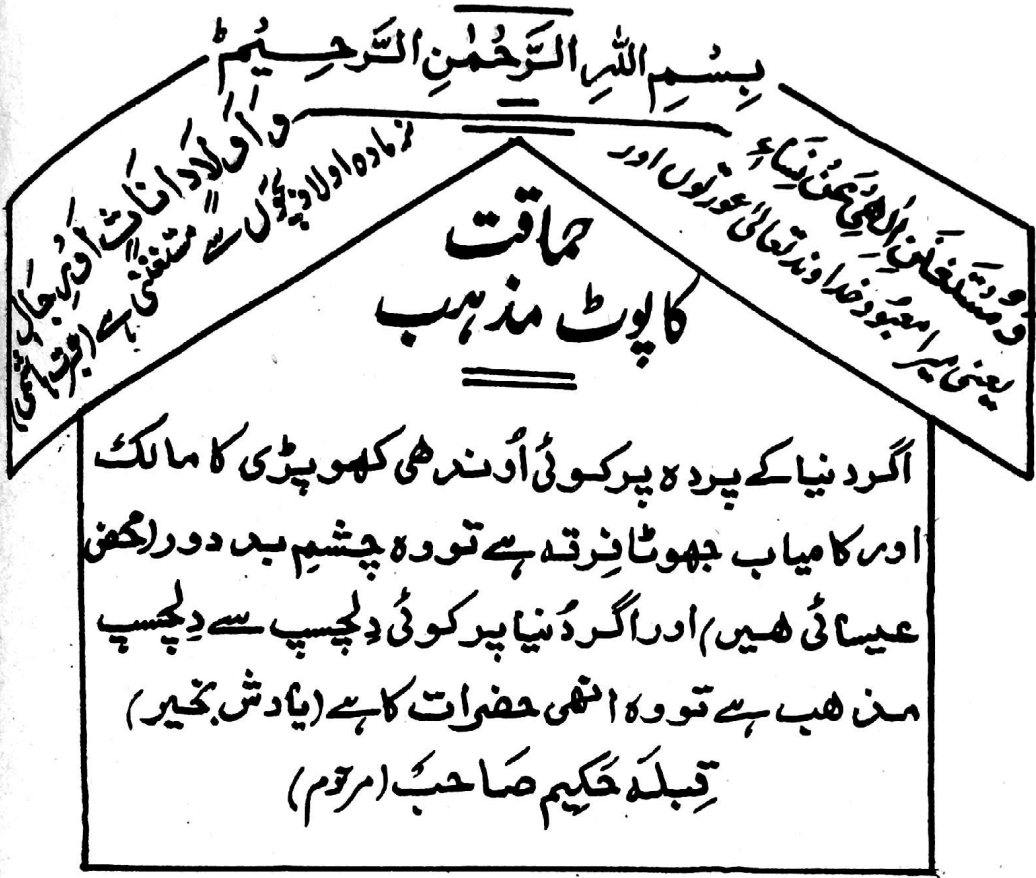 بِسْمِ اللہِ الرَّحْمٰنِ الرَّحِیْمِ
وَمُسْتَغْنٍ اِلٰھِیْ عَنْ نِسَاءٍ
یعنی میرا معبود خداوند تعالیٰ عورتوں اور
وَ اَوْلَادٍ اِنَاثٍ اَوْ رِجَالٍ
نر مادہ اولاد بچوں سے مستغنیٰ ہے (
حماقت
کا پوٹ مذہب
اگر دنیا کے پردہ پر کوئی اُوندھی کھوپڑی کا مالک
اور کامیاب جھوٹا فرقہ ہے تو وہ چشمِ بد دور (محض
عیسائی ھیں) اور اگر دُنیا پر کوئی دِلچسپ سے دِلچسپ
مذھب ہے تو وہ انھی حضرات کا ہے (یادش بخیر)
قبلہ حَکِیم صَاحبؒ (مرحوم)